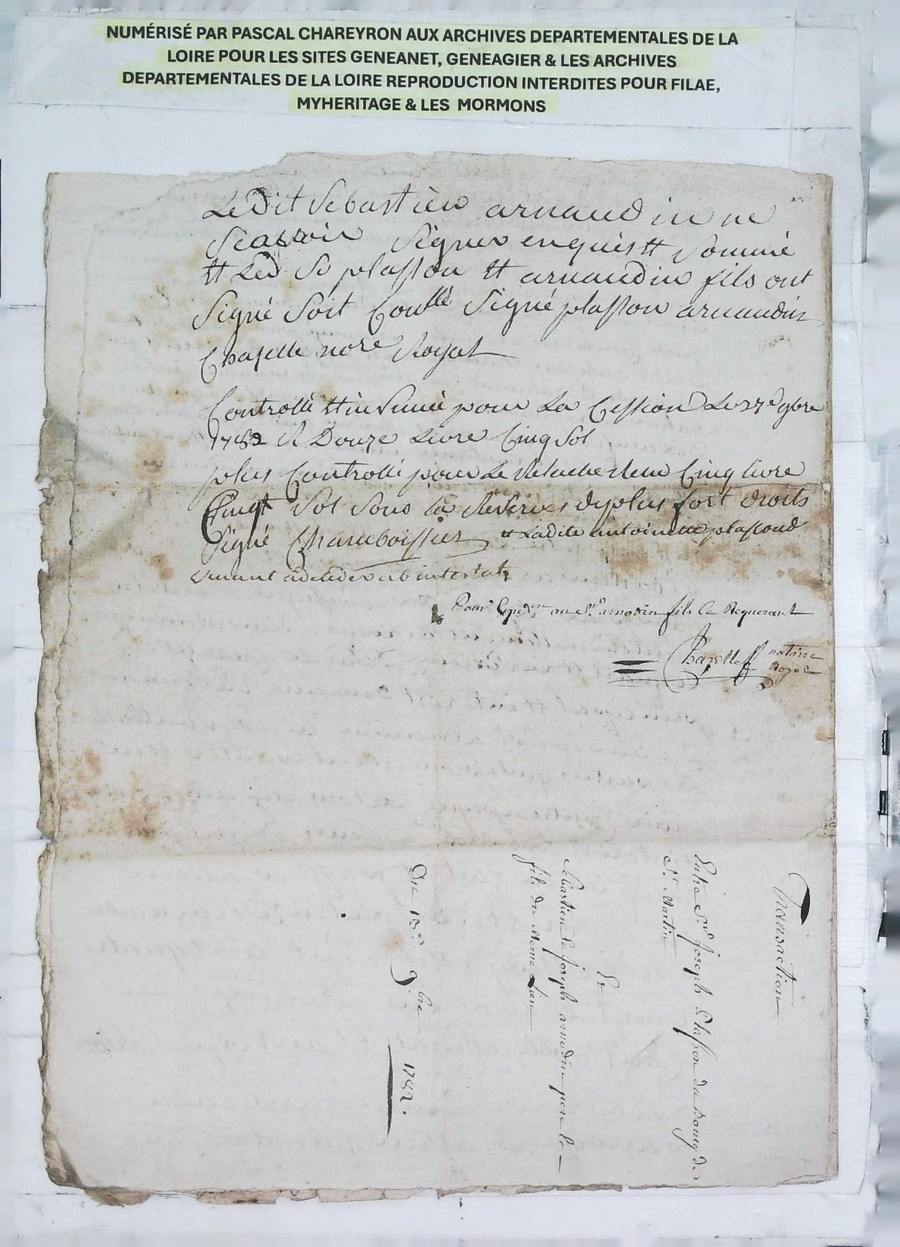 NUMÉRISÉ PAR PASCAL CHAREYRON AUX ARCHIVES DEPARTEMENTALES DE LA
LOIRE POUR LES SITES GENEANET, GENEAGIER & LES ARCHIVES
DEPARTEMENTALES DE LA LOIRE REPRODUCTION INTERDITES POUR FILAE,
MYHERITAGE & LES MORMONS
Ledit Sebastien arnaudin ne
Scavoir Signer enquis et Sommé
et Led Sr plasson et arnaudin fils ont
Signé Soit Contlé Signé plasson arnaudin
Chapelle nore Royal
Controllé et insinué pour La Cession Le 27e 9bre
1782 R Douze Livre Cinq Sol
plus Controllé pour Le Cinq livre
Vingt Sol Sous la Reserve de plus fort droits
Signé Chamboissier et Ladite antoinette plassond
intestat
Pour Expedon au Sr arnodin fils Ce Requerant
Chapelle notaire
Royal
Transaction
Entre Sr Joseph Plasson du Bourg de
St Martin
Et
Sébastien & Joseph arnodin pere &
fils du Meme Lieu
Du 13e 9bre 1782.